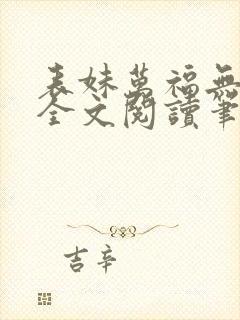 表妹萬福無
全文閱讀筆
吉辛